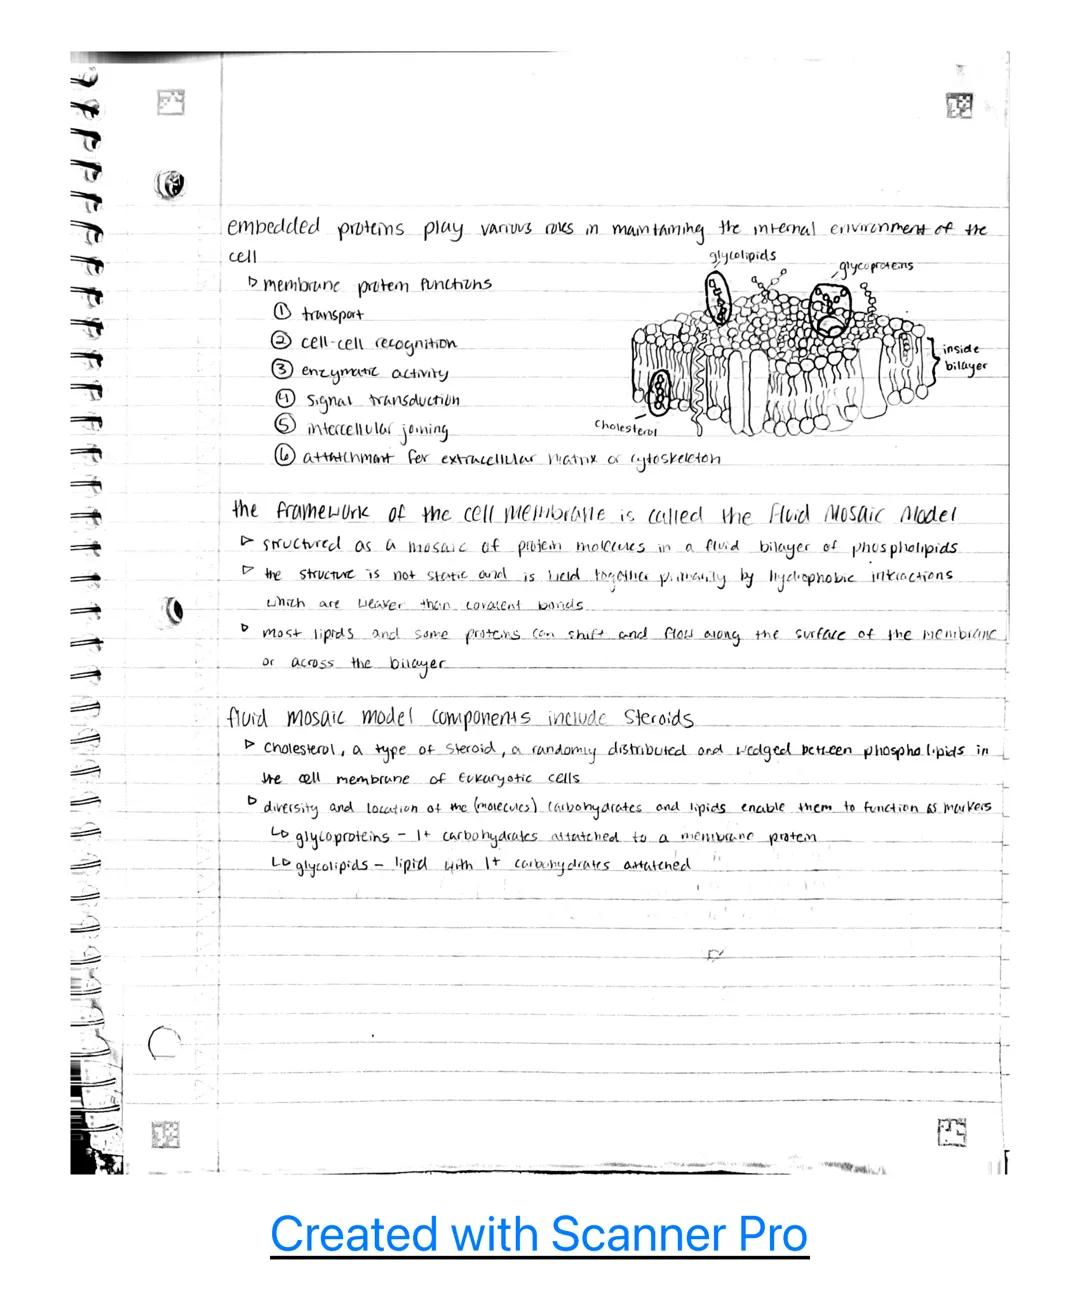 embedded proteins play various roles in maintaining the internal environment of the
cell
glycolipids
glycoproteins
▷ membrane protein functions
① transport
② cell-cell recognition
③ enzymatic activity
④ signal transduction
⑤ intercellular joining
⑥ attatchment for extracellular matrix or cytoskeleton
inside
bilayer
cholesterol
the framework of the cell membrane is called the Fluid Mosaic Model
▷ structured as a mosaic of protein molecules in a fluid bilayer of phospholipids
▷ the structure is not static and is held together primarily by hydrophobic interactions
which are weaker than covalent bonds
▷ most lipids and some proteins can shift and flow along the surface of the membrane
or across the bilayer
fluid mosaic model components include steroids
▷ cholesterol, a type of steroid, a randomly distributed and wedged between phospholipids in
the cell membrane of Eukaryotic cells
▷ diversity and location of the (molecules) carbohydrates and lipids enable them to function as markers
↳ glycoproteins - 1+ carbohydrates attatched to a membrane protein
↳ glycolipids - lipid with 1+ carbohydrates attatched
Created with Scanner Pro